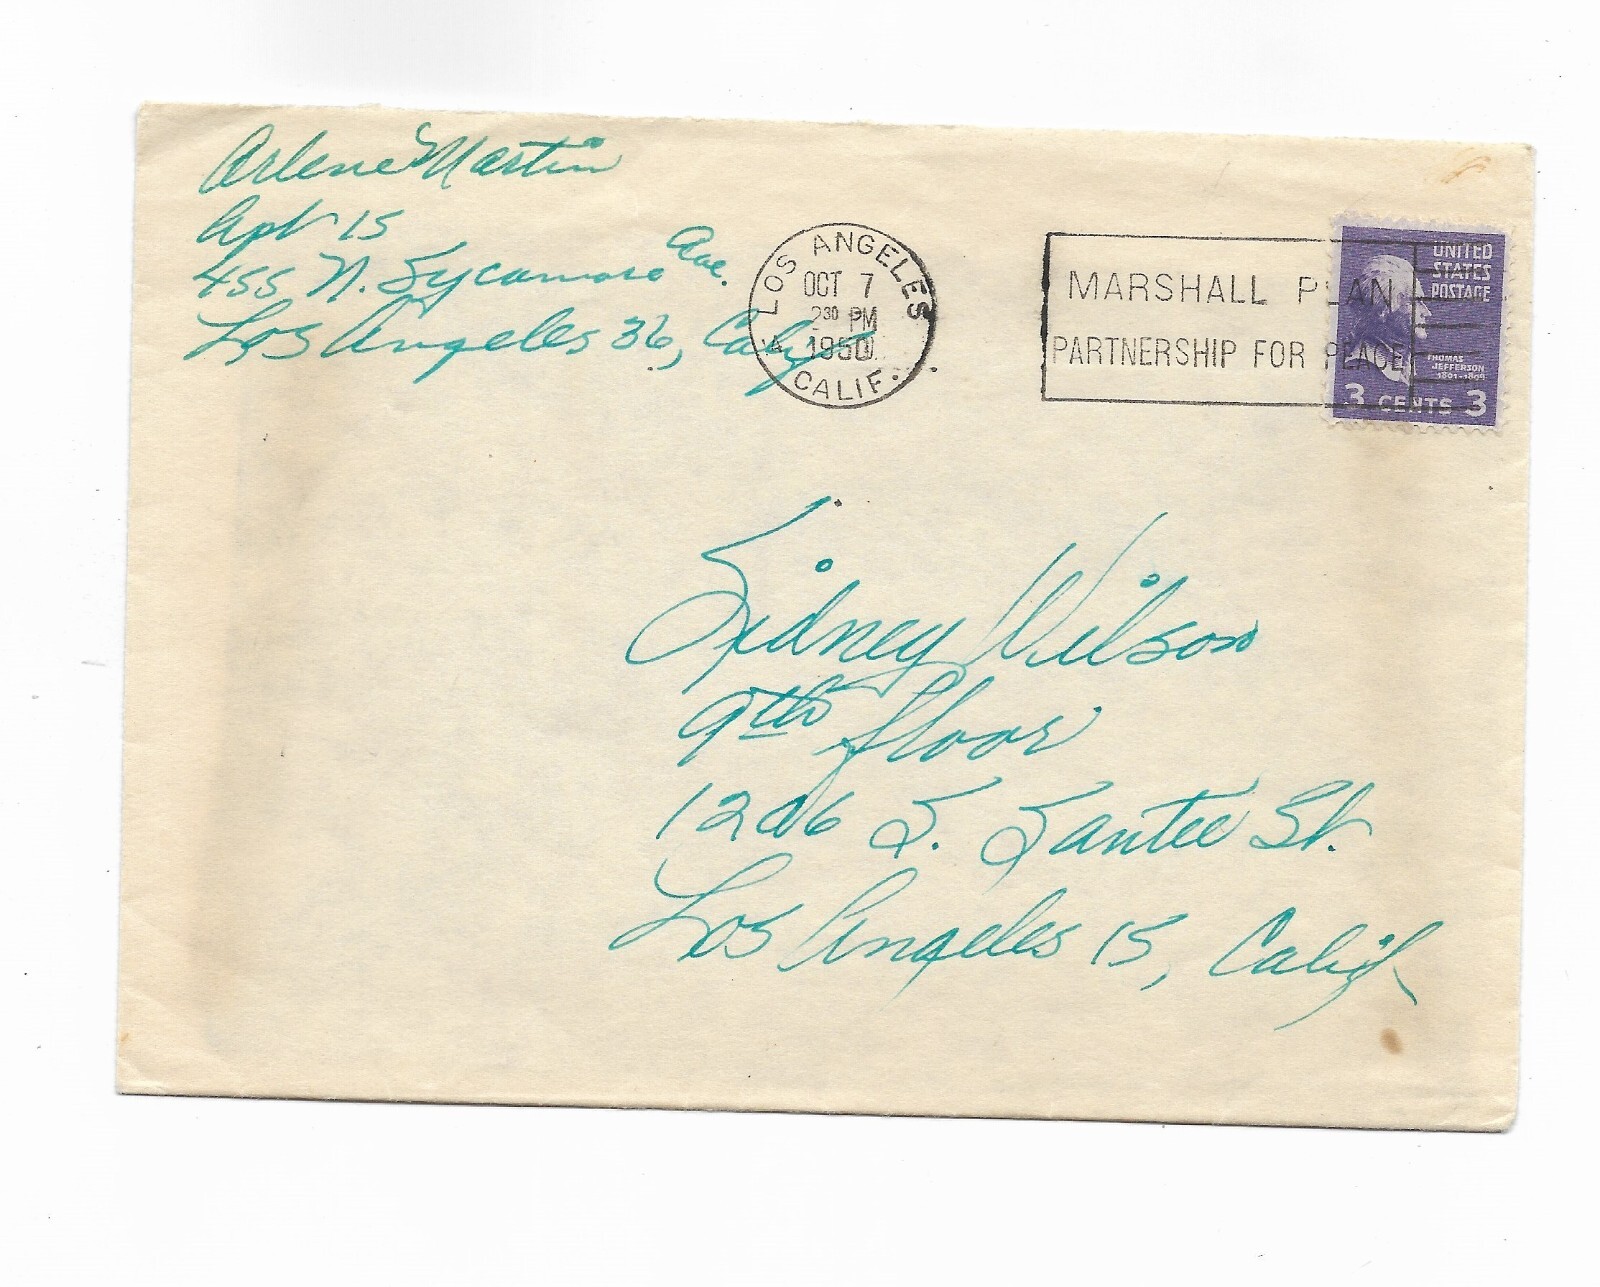 Arlene Martin
Apt 15
455 N. Sycamore Ave.
Los Angeles 36, Calif
LOS ANGELES
OCT 7
2 30 PM
1950
CALIF.
MARSHALL PLAN
PARTNERSHIP FOR PEACE
UNITED
STATES
POSTAGE
THOMAS
JEFFERSON
1801-1809
3 CENTS 3
Sidney Wilson
9th floor
1206 S. Santee St.
Los Angeles 15, Calif